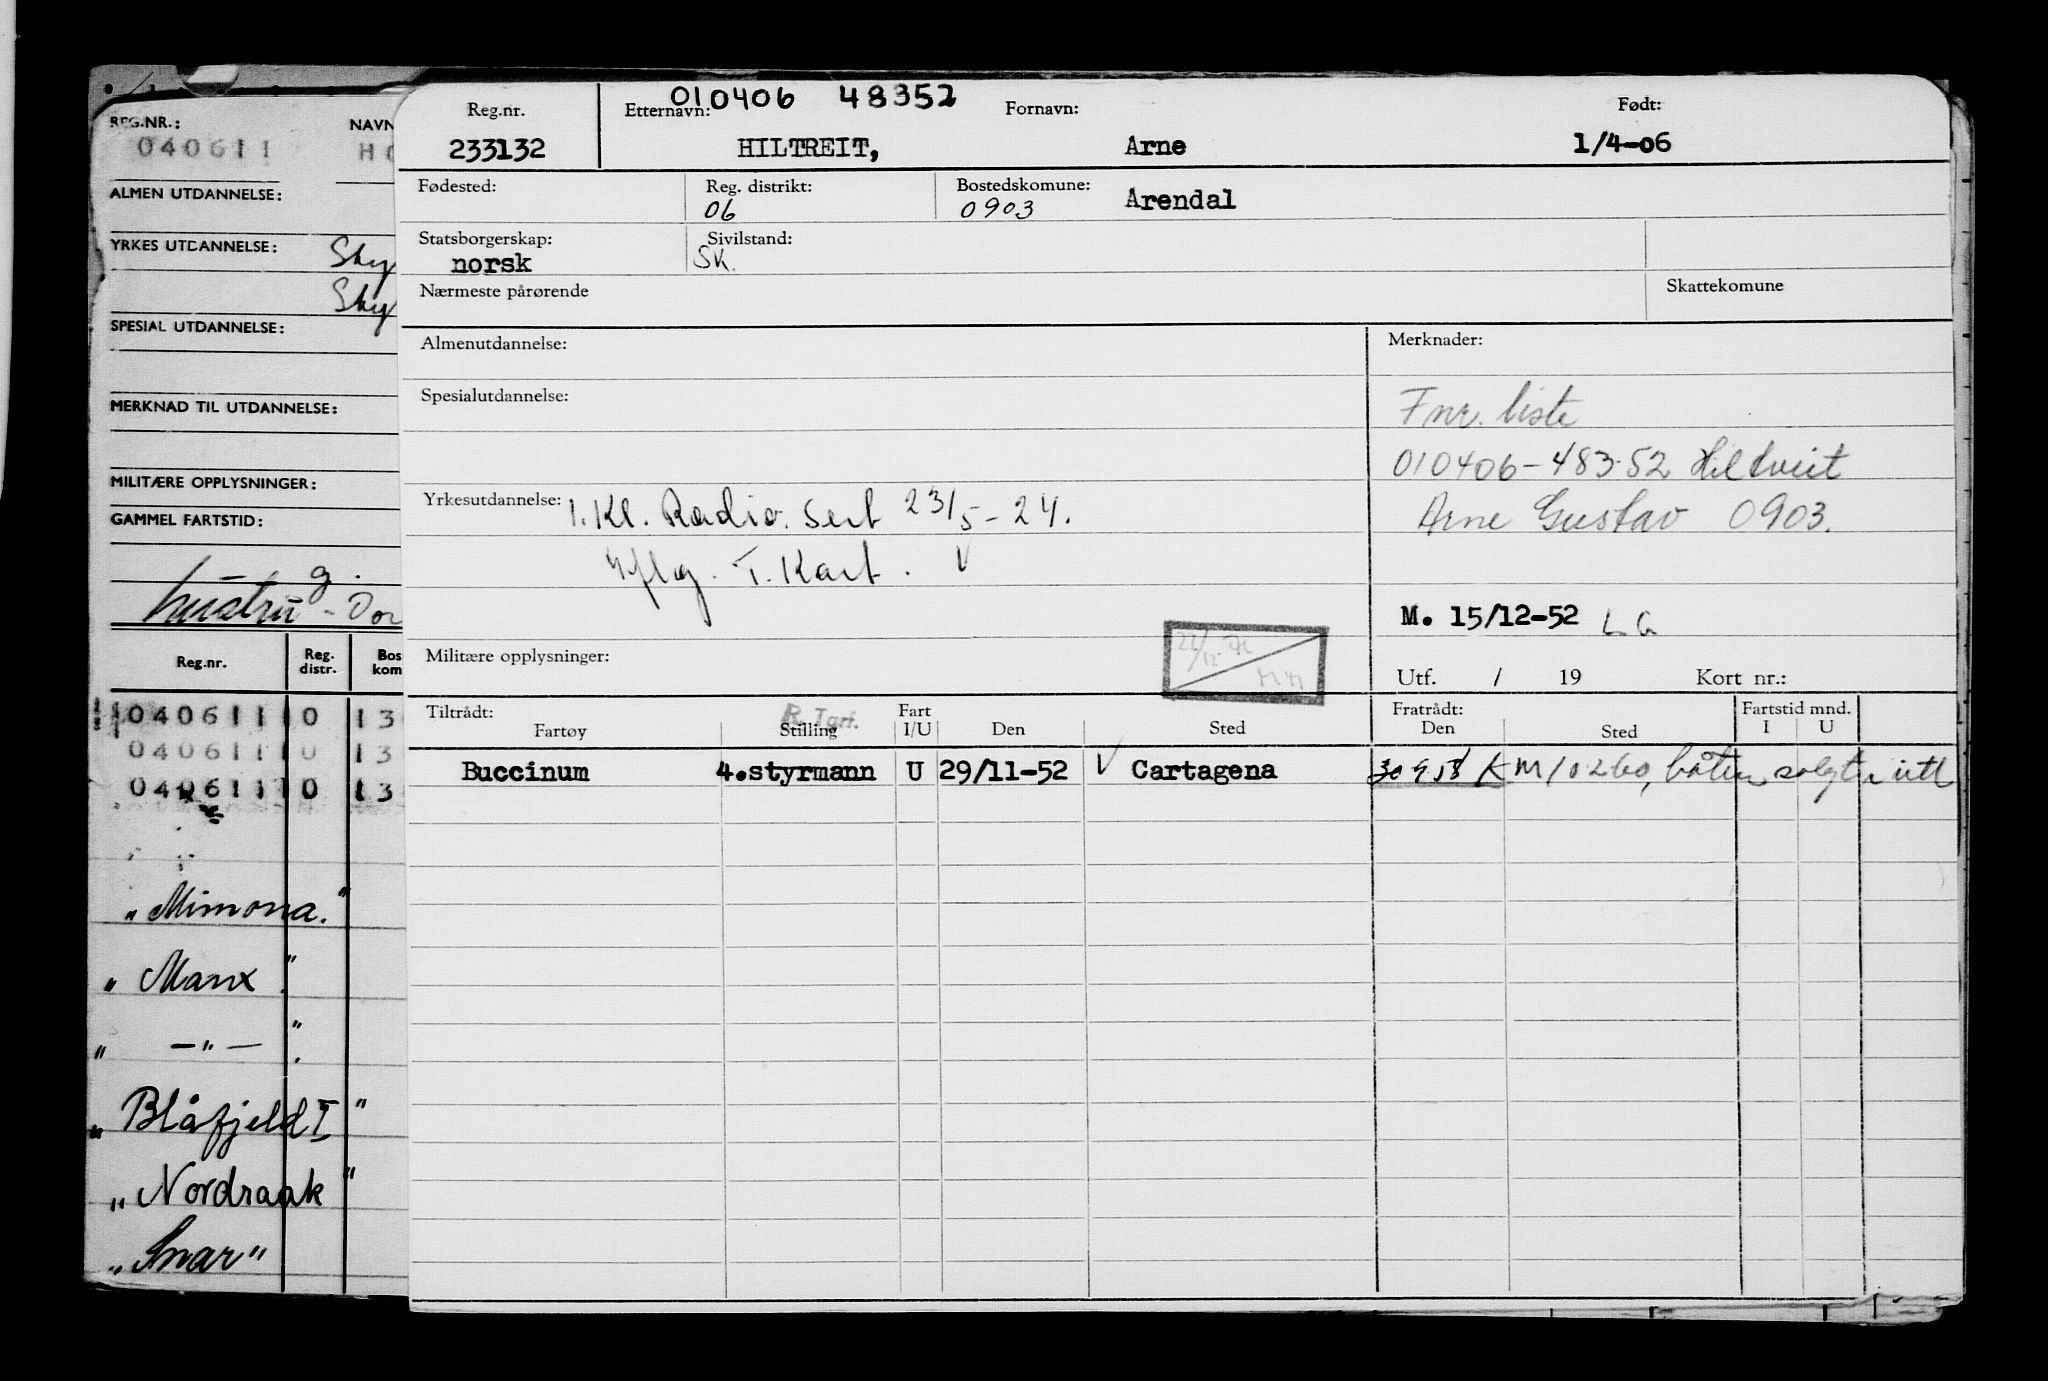 REG.NR.:
040611
NAVN
HO
ALMEN UTDANNELSE:
YRKES UTDANNELSE:
SPESIAL UTDANNELSE:
MERKNAD TIL UTDANNELSE:
MILITÆRE OPPLYSNINGER:
GAMMEL FARTSTID:
g.
hustru - Dor
Reg.nr. Reg. distr. Bos kom
040611 0 13
040611 0 13
040611 0 13
"Mimona."
"Manx".
" —"— ".
"Blåfjeld I"
"Nordraak"
"Snar"
010406 48352
Reg.nr. Etternavn: Fornavn: Født:
233132 HILTREIT, Arne 1/4-06
Fødested: Reg. distrikt: Bostedskomune:
06 0903 Arendal
Statsborgerskap: Sivilstand:
norsk SK.
Nærmeste pårørende Skattekomune
Almenutdannelse: Merknader:
Spesialutdannelse:
Fnr. liste
010406-483.52 Hiltveit
Arne Gustav 0903.
Yrkesutdannelse: 1. Kl. Radio. Sert 23/5-24.
T. Kart. V
M. 15/12-52 LG
Militære opplysninger:
Utf. / 19 Kort nr.:
Tiltrådt: Fart Fratrådt: Fartstid mnd.
Fartøy Stilling I/U Den Sted Den Sted I U
Buccinum 4.styrmann U 29/11-52 V Cartagena 30 9 58 KM/0260, båten solgt utl